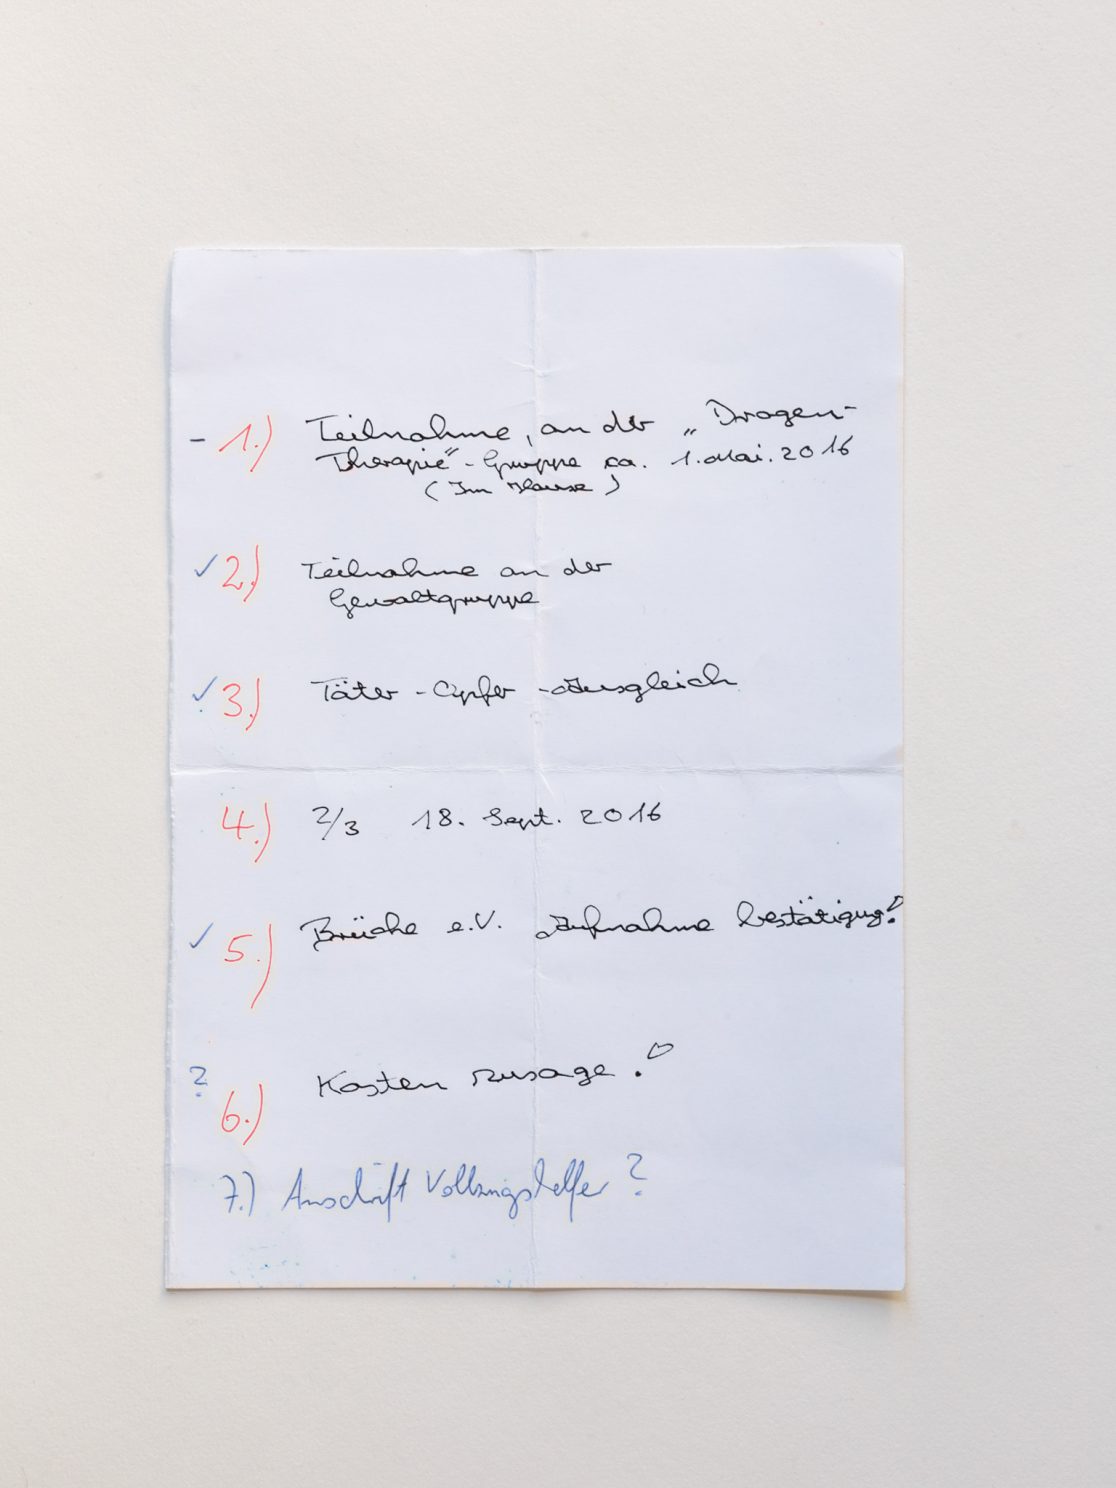 – 1.) Teilnahme, an der „Drogen-
Therapie"-Gruppe ca. 1. Mai. 2016
(Im Hause)
✓ 2.) Teilnahme an der
Gewaltgruppe
✓ 3.) Täter - Opfer - Ausgleich
4.) 2/3 18. Sept. 2016
✓ 5.) Brücke e.V. Aufnahme bestätigung!
? 6.) Kosten zusage!
7.) Anschrift Vollzugshelfer?